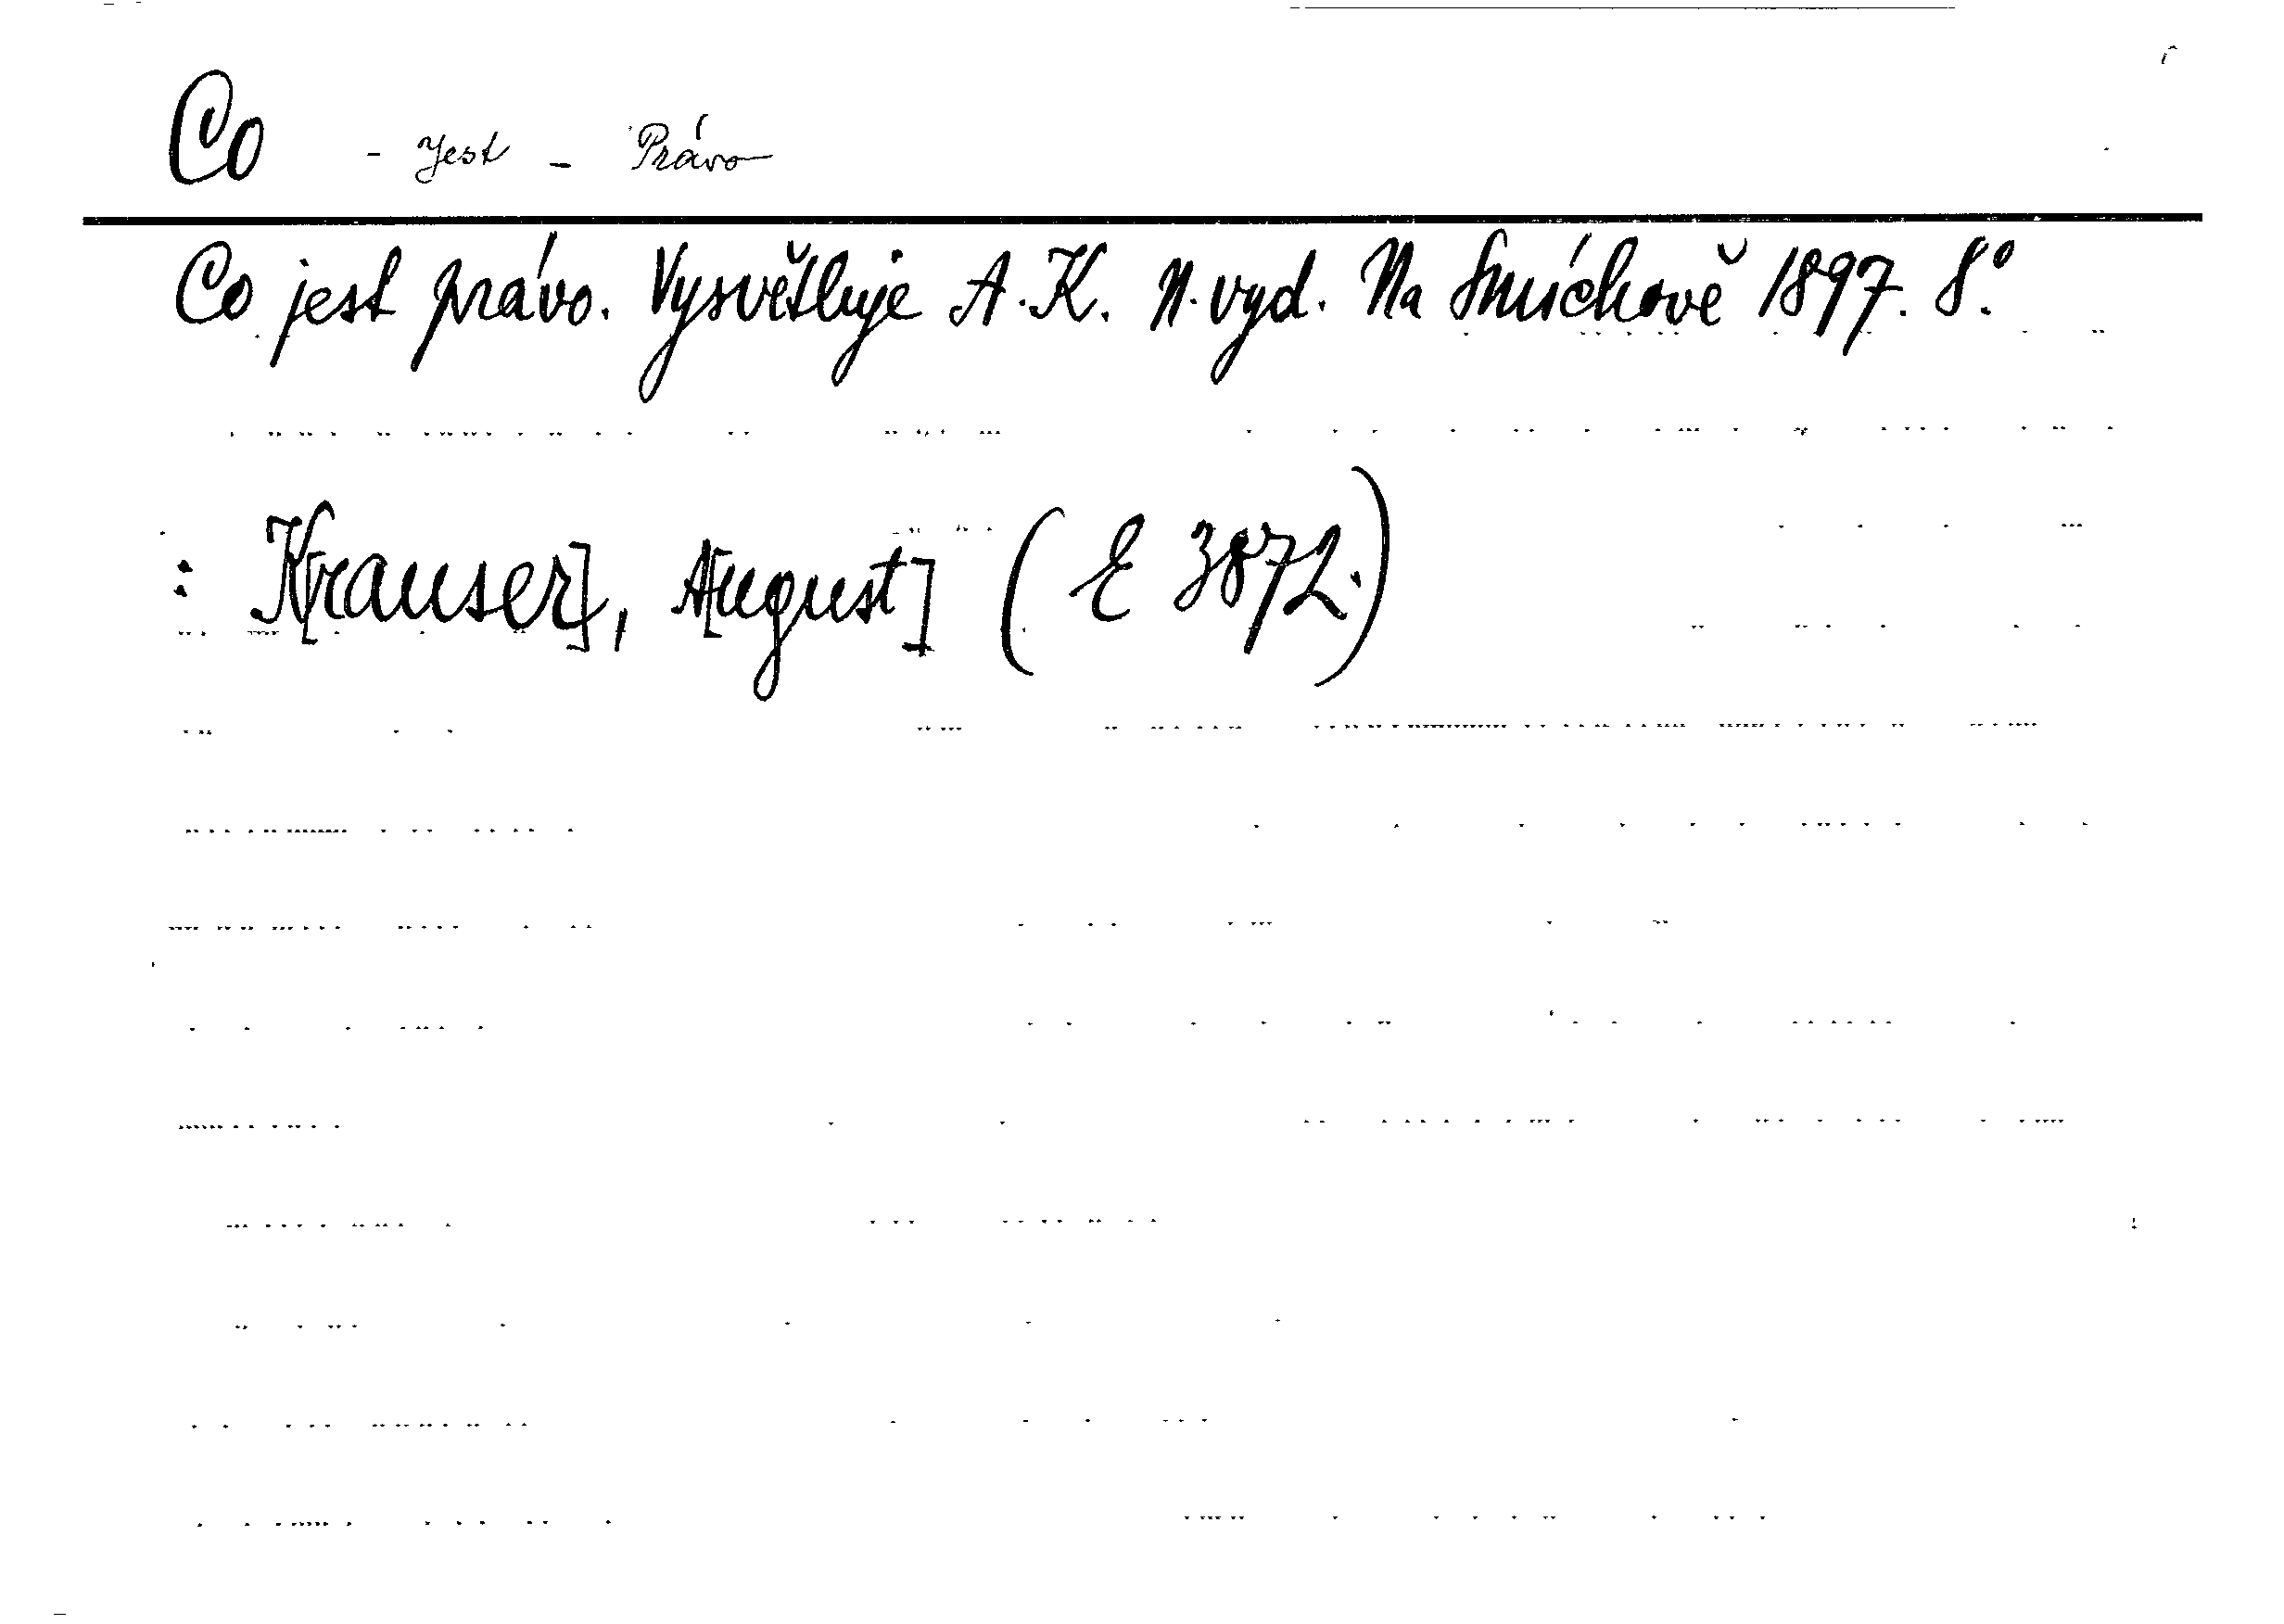 Co - Jest - Právo
Co jest právo. Vysvětluje A. K. N. vyd. Na Smíchově 1897. 8.°
: K[rauser], A[ugust] (E 3872.)